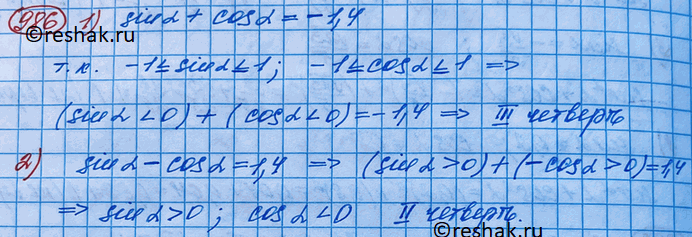 986 1) sinα + cosα = -1,4
© reshak.ru
т.к. -1≤sinα≤1; -1≤cosα≤1 =>
(sinα<0) + (cosα<0) = -1,4 => III четверть
2) sinα - cosα = 1,4 => (sinα>0) + (-cosα>0) = 1,4
=> sinα>0; cosα<0 II четверть.
© reshak.ru